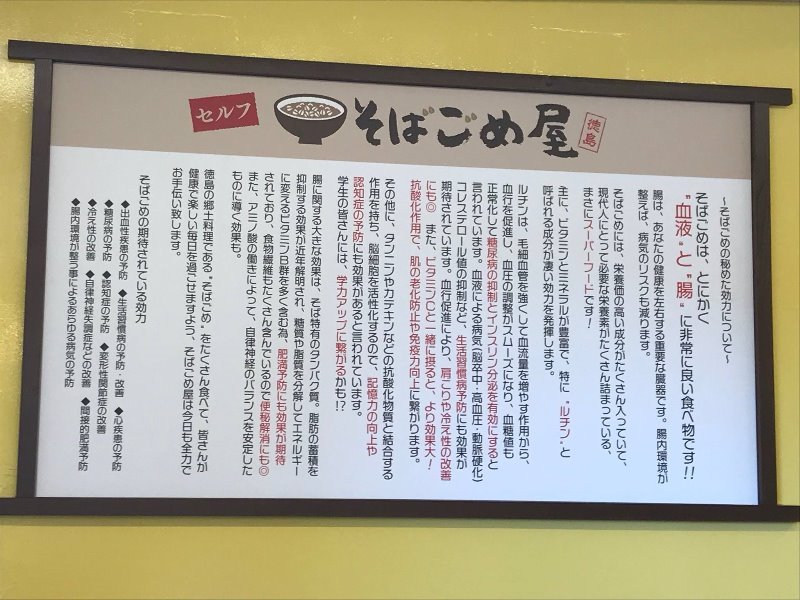 セルフ
そばごめ屋
徳島
～そばごめの秘めた効力について～
そばごめは、とにかく
"血液"と"腸"に非常に良い食べ物です!!
腸は、あなたの健康を左右する重要な臓器です。腸内環境が
整えば、病気のリスクも減ります。
そばごめには、栄養価の高い成分がたくさん入っていて、
現代人にとって必要な栄養素がたくさん詰まっている、
まさにスーパーフードです!
主に、ビタミンとミネラルが豊富で、特に"ルチン"と
呼ばれる成分が凄い効力を発揮します。
ルチンは、毛細血管を強くして血流量を増やす作用から、
血行を促進し、血圧の調整がスムーズになり、血糖値も
正常化して糖尿病の抑制とインスリン分泌を有効にすると
言われています。血液による病気(脳卒中・高血圧・動脈硬化)
コレステロール値の抑制など、生活習慣病予防にも効果が
期待されています。血行促進により、肩こりや冷え性の改善
にも◎ また、ビタミンCと一緒に摂ると、より効果大!
抗酸化作用で、肌の老化防止や免疫力向上に繋がります。
その他に、タンニンやカテキンなどの抗酸化物質と結合する
作用を持ち、脳細胞を活性化するので、記憶力の向上や
認知症の予防にも効果があると言われています。
学生の皆さんには、学力アップに繋がるかも!?
腸に関する大きな効果は、そば特有のタンパク質。脂肪の蓄積を
抑制する効果が近年解明され、糖質や脂質を分解してエネルギー
に変えるビタミンB群を多く含む為、肥満予防にも効果が期待
されており、食物繊維もたくさん含んでいるので便秘解消にも◎
また、アミノ酸の働きによって、自律神経のバランスを安定した
ものに導く効果も。
徳島の郷土料理である"そばごめ"をたくさん食べて、皆さんが
健康で楽しい毎日を過ごせますよう、そばごめ屋は今日も全力で
お手伝い致します。
そばごめの期待されている効力
◆出血性疾患の予防 ◆生活習慣病の予防・改善 ◆心疾患の予防
◆糖尿病の予防 ◆認知症の予防 ◆変形性関節症の改善
◆冷え性の改善 ◆自律神経失調症などの改善 ◆間接的肥満予防
◆腸内環境が整う事によるあらゆる病気の予防